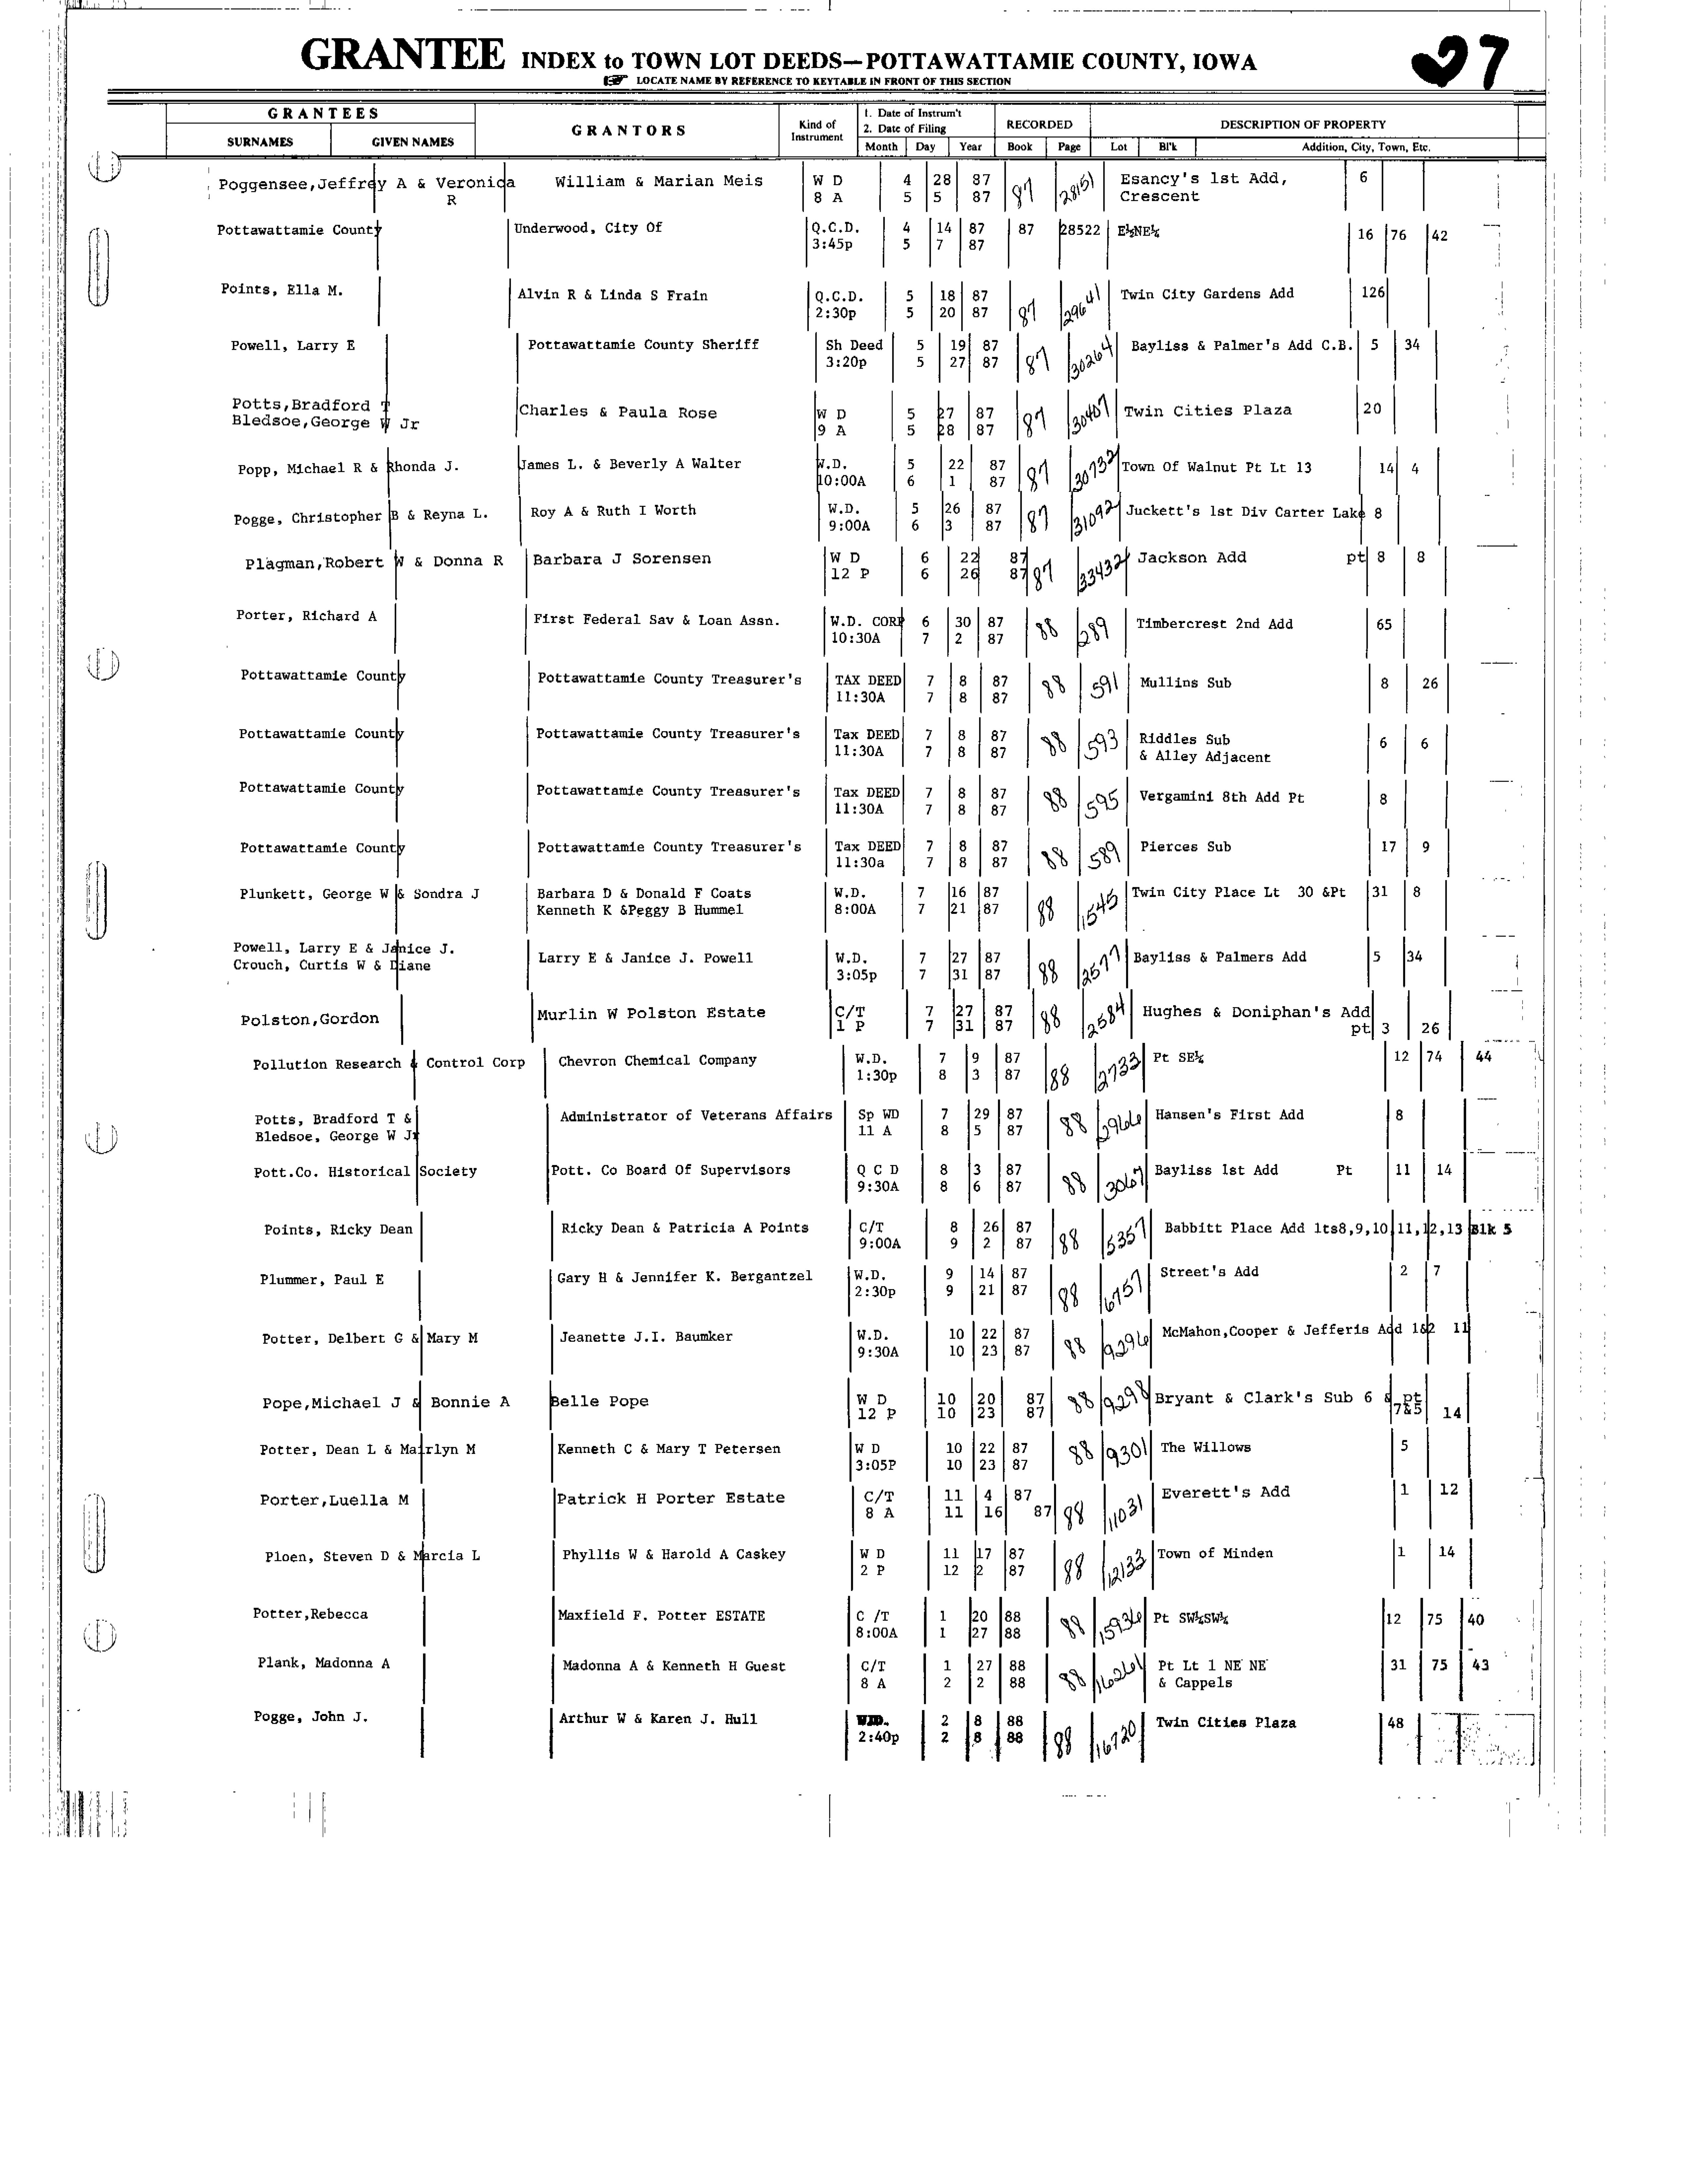 GRANTEE INDEX to TOWN LOT DEEDS—POTTAWATTAMIE COUNTY, IOWA
LOCATE NAME BY REFERENCE TO KEYTABLE IN FRONT OF THIS SECTION
GRANTEES
SURNAMES GIVEN NAMES GRANTORS Kind of Instrument 1. Date of Instrum't 2. Date of Filing Month Day Year RECORDED Book Page DESCRIPTION OF PROPERTY Lot Bl'k Addition, City, Town, Etc.
Poggensee,Jeffrey A & Veronica William & Marian Meis W D 4 28 87 87 28151 Esancy's 1st Add, 6
R 8 A 5 5 87 Crescent
Pottawattamie County Underwood, City Of Q.C.D. 4 14 87 87 28522 E½NE¼ 16 76 42
3:45p 5 7 87
Points, Ella M. Alvin R & Linda S Frain Q.C.D. 5 18 87 87 29641 Twin City Gardens Add 126
2:30p 5 20 87
Powell, Larry E Pottawattamie County Sheriff Sh Deed 5 19 87 87 30264 Bayliss & Palmer's Add C.B. 5 34
3:20p 5 27 87
Potts,Bradford T Charles & Paula Rose W D 5 27 87 87 30407 Twin Cities Plaza 20
Bledsoe,George W Jr 9 A 5 28 87
Popp, Michael R & Rhonda J. James L. & Beverly A Walter W.D. 5 22 87 87 30732 Town Of Walnut Pt Lt 13 14 4
10:00A 6 1 87
Pogge, Christopher B & Reyna L. Roy A & Ruth I Worth W.D. 5 26 87 87 31092 Juckett's 1st Div Carter Lake 8
9:00A 6 3 87
Plagman,Robert W & Donna R Barbara J Sorensen W D 6 22 87 87 33432 Jackson Add pt 8 8
12 P 6 26 87
Porter, Richard A First Federal Sav & Loan Assn. W.D. CORP 6 30 87 88 289 Timbercrest 2nd Add 65
10:30A 7 2 87
Pottawattamie County Pottawattamie County Treasurer's TAX DEED 7 8 87 88 591 Mullins Sub 8 26
11:30A 7 8 87
Pottawattamie County Pottawattamie County Treasurer's Tax DEED 7 8 87 88 593 Riddles Sub 6 6
11:30A 7 8 87 & Alley Adjacent
Pottawattamie County Pottawattamie County Treasurer's Tax DEED 7 8 87 88 595 Vergamini 8th Add Pt 8
11:30A 7 8 87
Pottawattamie County Pottawattamie County Treasurer's Tax DEED 7 8 87 88 589 Pierces Sub 17 9
11:30a 7 8 87
Plunkett, George W & Sondra J Barbara D & Donald F Coats W.D. 7 16 87 88 1545 Twin City Place Lt 30 &Pt 31 8
Kenneth K &Peggy B Hummel 8:00A 7 21 87
Powell, Larry E & Janice J. Larry E & Janice J. Powell W.D. 7 27 87 88 2577 Bayliss & Palmers Add 5 34
Crouch, Curtis W & Diane 3:05p 7 31 87
Polston,Gordon Murlin W Polston Estate C/T 7 27 87 88 2584 Hughes & Doniphan's Add
1 P 7 31 87 pt 3 26
Pollution Research & Control Corp Chevron Chemical Company W.D. 7 9 87 88 2733 Pt SE¼ 12 74 44
1:30p 8 3 87
Potts, Bradford T & Administrator of Veterans Affairs Sp WD 7 29 87 88 2966 Hansen's First Add 8
Bledsoe, George W Jr 11 A 8 5 87
Pott.Co. Historical Society Pott. Co Board Of Supervisors Q C D 8 3 87 88 3067 Bayliss 1st Add Pt 11 14
9:30A 8 6 87
Points, Ricky Dean Ricky Dean & Patricia A Points C/T 8 26 87 88 5357 Babbitt Place Add lts8,9,10,11,12,13 Blk 5
9:00A 9 2 87
Plummer, Paul E Gary H & Jennifer K. Bergantzel W.D. 9 14 87 88 6757 Street's Add 2 7
2:30p 9 21 87
Potter, Delbert G & Mary M Jeanette J.I. Baumker W.D. 10 22 87 88 9296 McMahon,Cooper & Jefferis Add 1&2 11
9:30A 10 23 87
Pope,Michael J & Bonnie A Belle Pope W D 10 20 87 88 9298 Bryant & Clark's Sub 6 & pt
12 P 10 23 87 7&5 14
Potter, Dean L & Mairlyn M Kenneth C & Mary T Petersen W D 10 22 87 88 9301 The Willows 5
3:05P 10 23 87
Porter,Luella M Patrick H Porter Estate C/T 11 4 87 88 11031 Everett's Add 1 12
8 A 11 16 87
Ploen, Steven D & Marcia L Phyllis W & Harold A Caskey W D 11 17 87 88 12133 Town of Minden 1 14
2 P 12 2 87
Potter,Rebecca Maxfield F. Potter ESTATE C /T 1 20 88 88 15936 Pt SW¼SW¼ 12 75 40
8:00A 1 27 88
Plank, Madonna A Madonna A & Kenneth H Guest C/T 1 27 88 88 16261 Pt Lt 1 NE NE 31 75 43
8 A 2 2 88 & Cappels
Pogge, John J. Arthur W & Karen J. Hull W.D. 2 8 88 88 16720 Twin Cities Plaza 48
2:40p 2 8 88